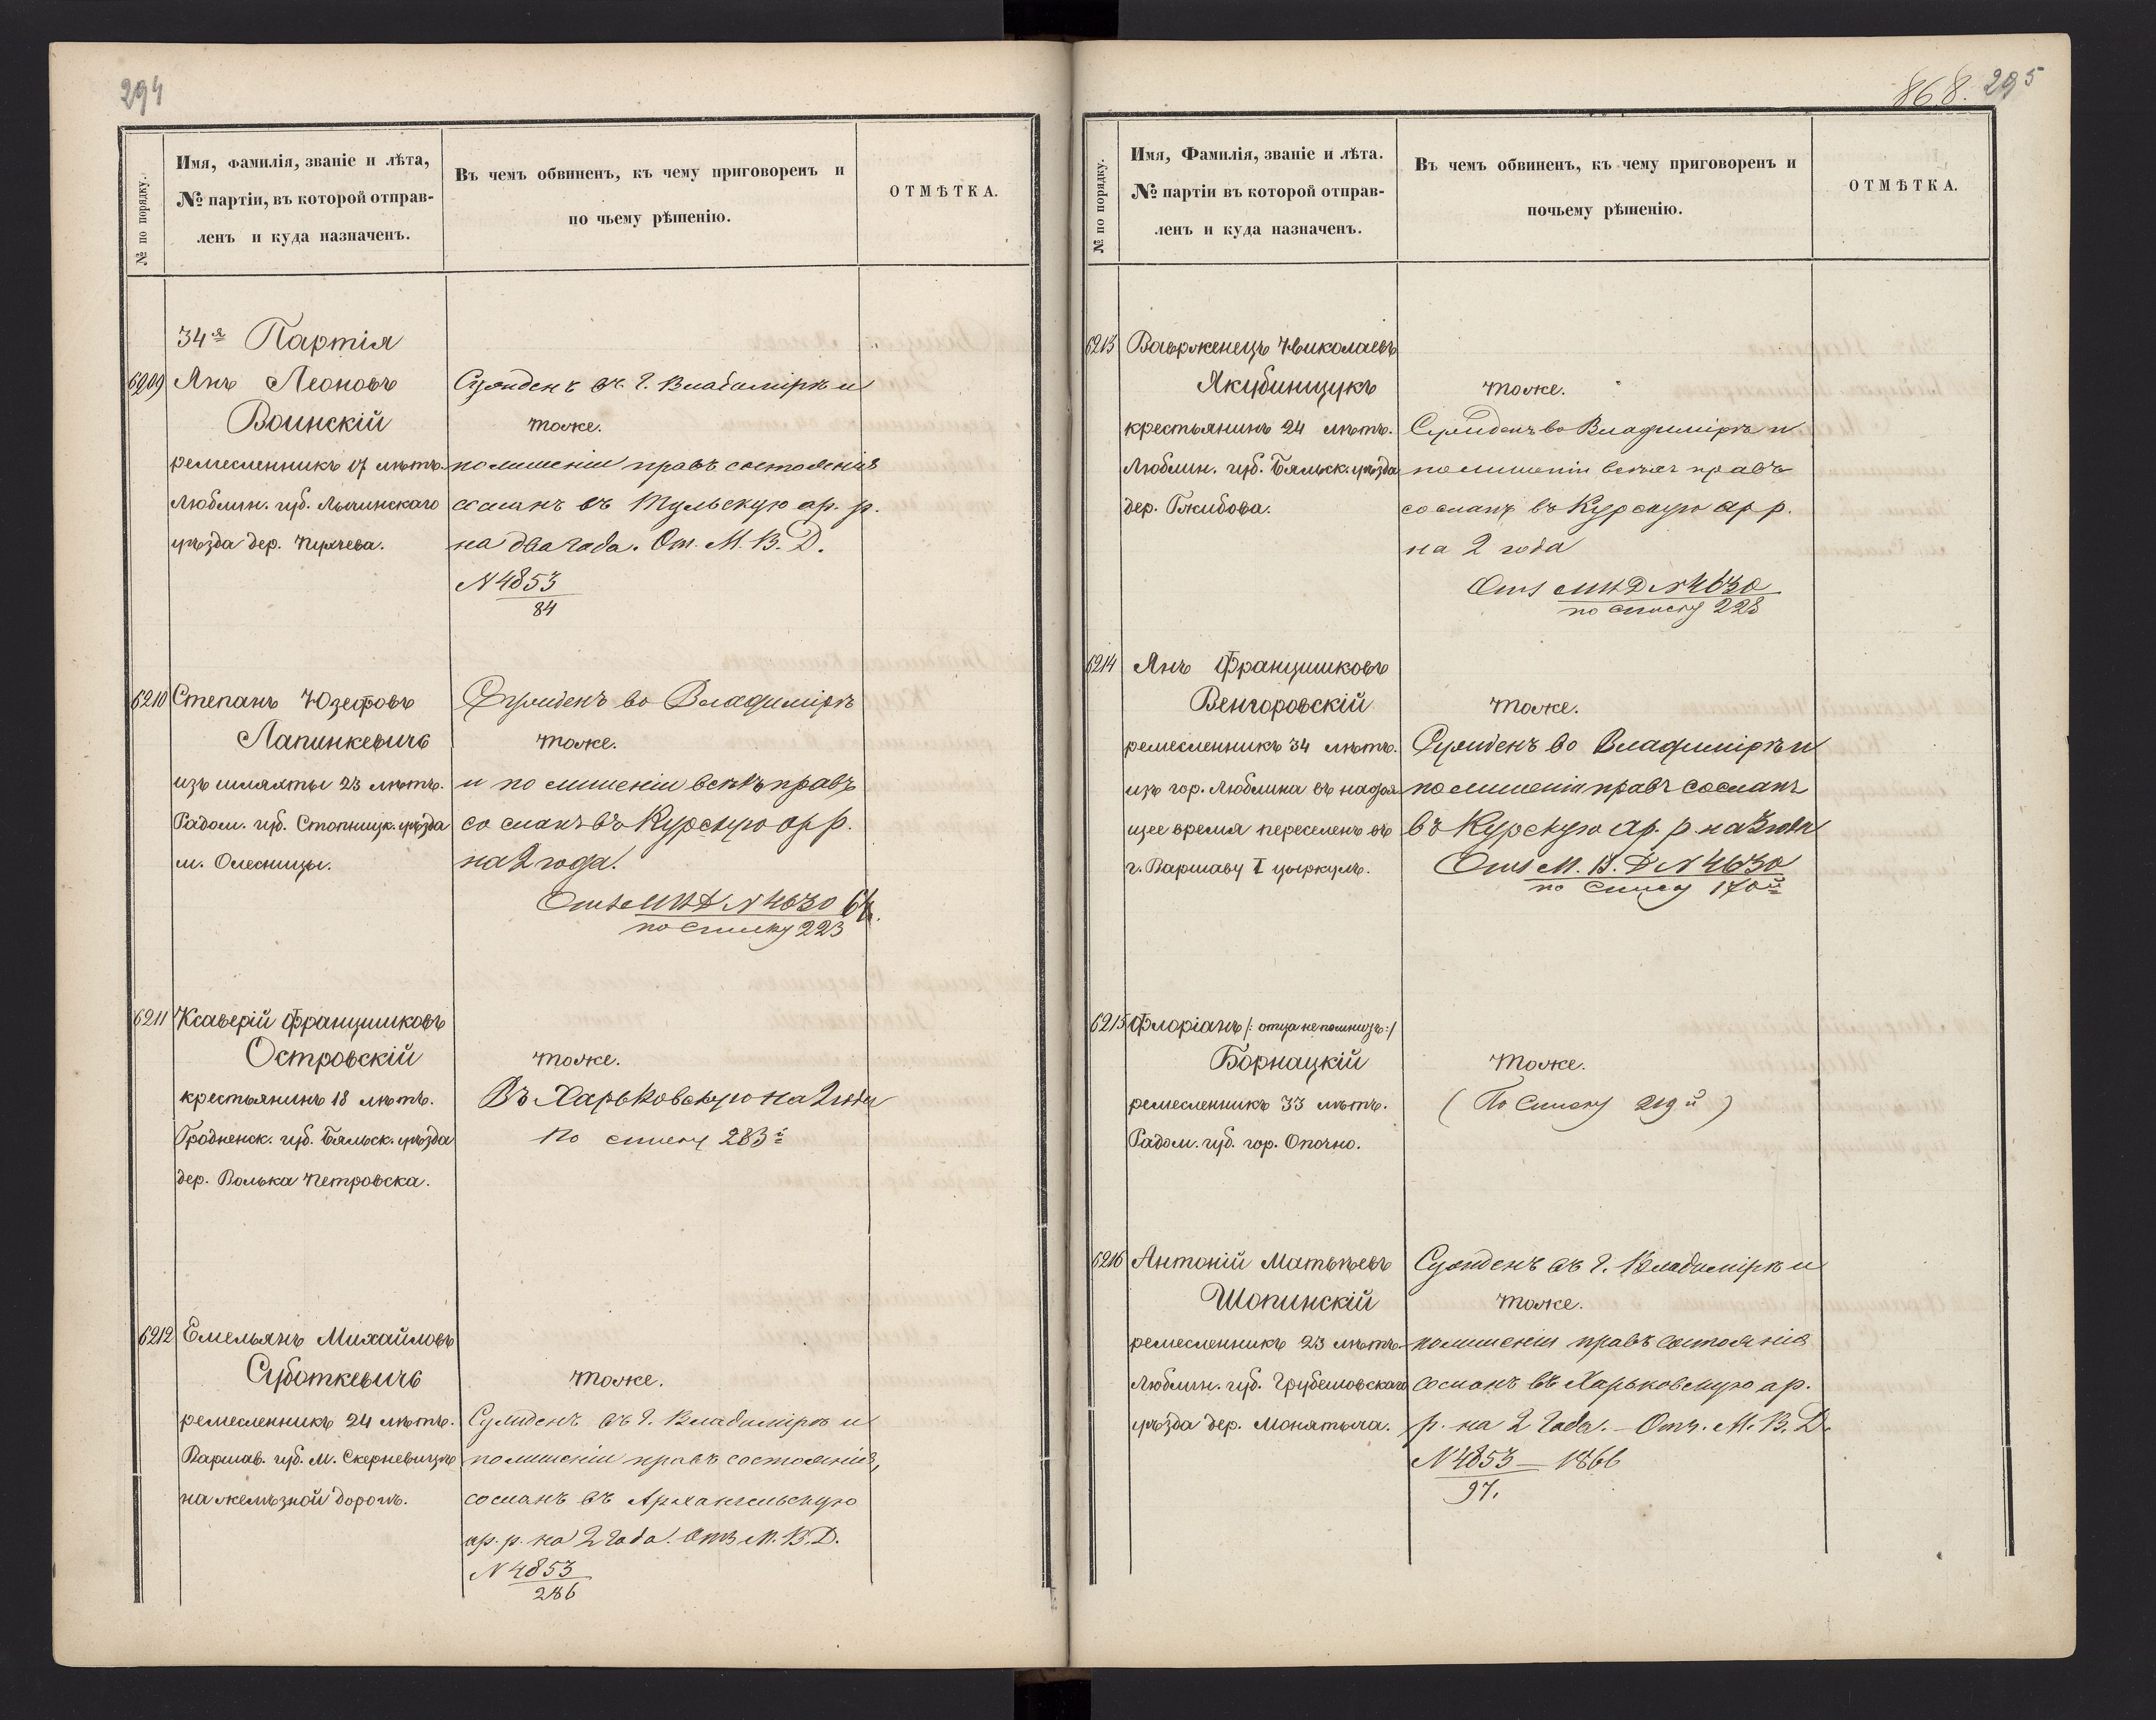 294
№ по порядку.
Имя, фамилія, званіе и лѣта,
№ партіи, въ которой отправ-
ленъ и куда назначенъ.
Въ чемъ обвиненъ, къ чему приговоренъ и
по чьему рѣшенію.
ОТМѢТКА.
34я Партія
6209 Янъ Леоновъ
Воинскій
ремесленникъ 17 лѣтъ.
Люблин. губ.
уѣзда дер.
Сужденъ въ г. Владимірѣ и
тоже.
по лишеніи правъ состоянія
сосланъ въ Тульскую ар. р.
на два года. От. М. В. Д.
N 4853
84
6210 Степанъ Юзефовъ
Лапинкевичъ
изъ шляхты 23 лѣтъ.
Радом. губ. Стопницк. уѣзда
м. Олесницы.
Сужденъ во Владимірѣ
тоже.
и по лишеніи всѣхъ правъ
сосланъ въ Курскую ар р.
на 2 года.
Отъ МВД N 4630
по списку 223
6211 Ксаверій Францишковъ
Островскій
крестьянинъ 18 лѣтъ.
Гродненск. губ. Бяльск. уѣзда
дер. Волька Петровска.
тоже.
Въ Харьковскую на 2 года
По списку 283й
6212 Емельянъ Михайловъ
Суботкевичъ
ремесленникъ 24 лѣтъ.
Варшав. губ. М. Скерневицы
на желѣзной дорогѣ.
тоже.
Сужденъ въ г. Владимірѣ и
по лишеніи правъ состоянія,
сосланъ въ Архангельскую
ар. р. на 2 года. Отъ М. В. Д.
N 4853
286
868. 295
№ по порядку.
Имя, Фамилія, званіе и лѣта.
№ партіи въ которой отправ-
ленъ и куда назначенъ.
Въ чемъ обвиненъ, къ чему приговоренъ и
почьему рѣшенію.
ОТМѢТКА.
6213 Ваврженецъ Николаевъ
Якубинщукъ
крестьянинъ 24 лѣтъ.
Люблин. губ. Бяльск. уѣзда
дер. Гжибова.
тоже.
Сужденъ во Владимірѣ и
по лишеніи всѣхъ правъ
сосланъ въ Курскую ар р.
на 2 года
Отъ МВД N 4630
по списку 228
6214 Янъ Францишковъ
Венгоровскій
ремесленникъ 34 лѣтъ.
изъ гор. Люблина въ настоя
щее время переселенъ въ
г. Варшаву I цыркулъ.
тоже.
Сужденъ во Владимірѣ и
по лишеніи правъ сосланъ
въ Курскую ар. р. на 3 года
Отъ М. В. Д N 4630
по списку 170й
6215 Флоріанъ /: отца не помнитъ :/
Борнацкій
ремесленникъ 33 лѣтъ.
Радом. губ. гор. Опочно.
тоже.
( По списку 219й )
6216 Антоній Матвѣевъ
Шопинскій
ремесленникъ 23 лѣтъ.
Люблин. губ. Грубешовскаго
уѣзда дер. Монятыча.
Сужденъ въ г. Владимірѣ и
тоже.
по лишеніи правъ состоянія
сосланъ въ Харьковскую ар.
р. на 2 года. — Отъ. М. В. Д.
N 4853 — 1866
97.